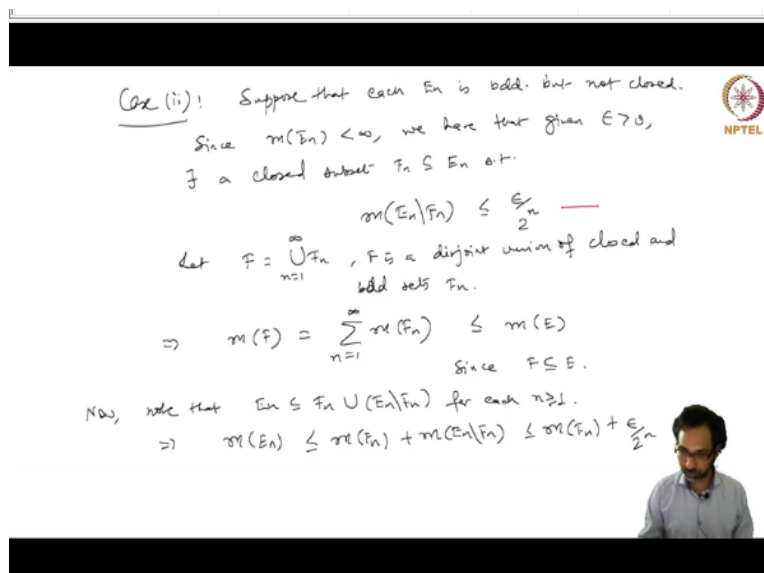 Case (ii): Suppose that each En is bdd. but not closed.
NPTEL
Since m(En) < ∞, we have that given ϵ > 0,
∃ a closed subset Fn ⊆ En s.t.
m(En\Fn) ≤ ϵ/2^n
Let F = ⋃_{n=1}^{∞} Fn, F is a disjoint union of closed and
bdd sets Fn.
⇒ m(F) = ∑_{n=1}^{∞} m(Fn) ≤ m(E)
Since F ⊆ E.
Now, note that En ⊆ Fn ∪ (En\Fn) for each n ≥ 1.
⇒ m(En) ≤ m(Fn) + m(En\Fn) ≤ m(Fn) + ϵ/2^n